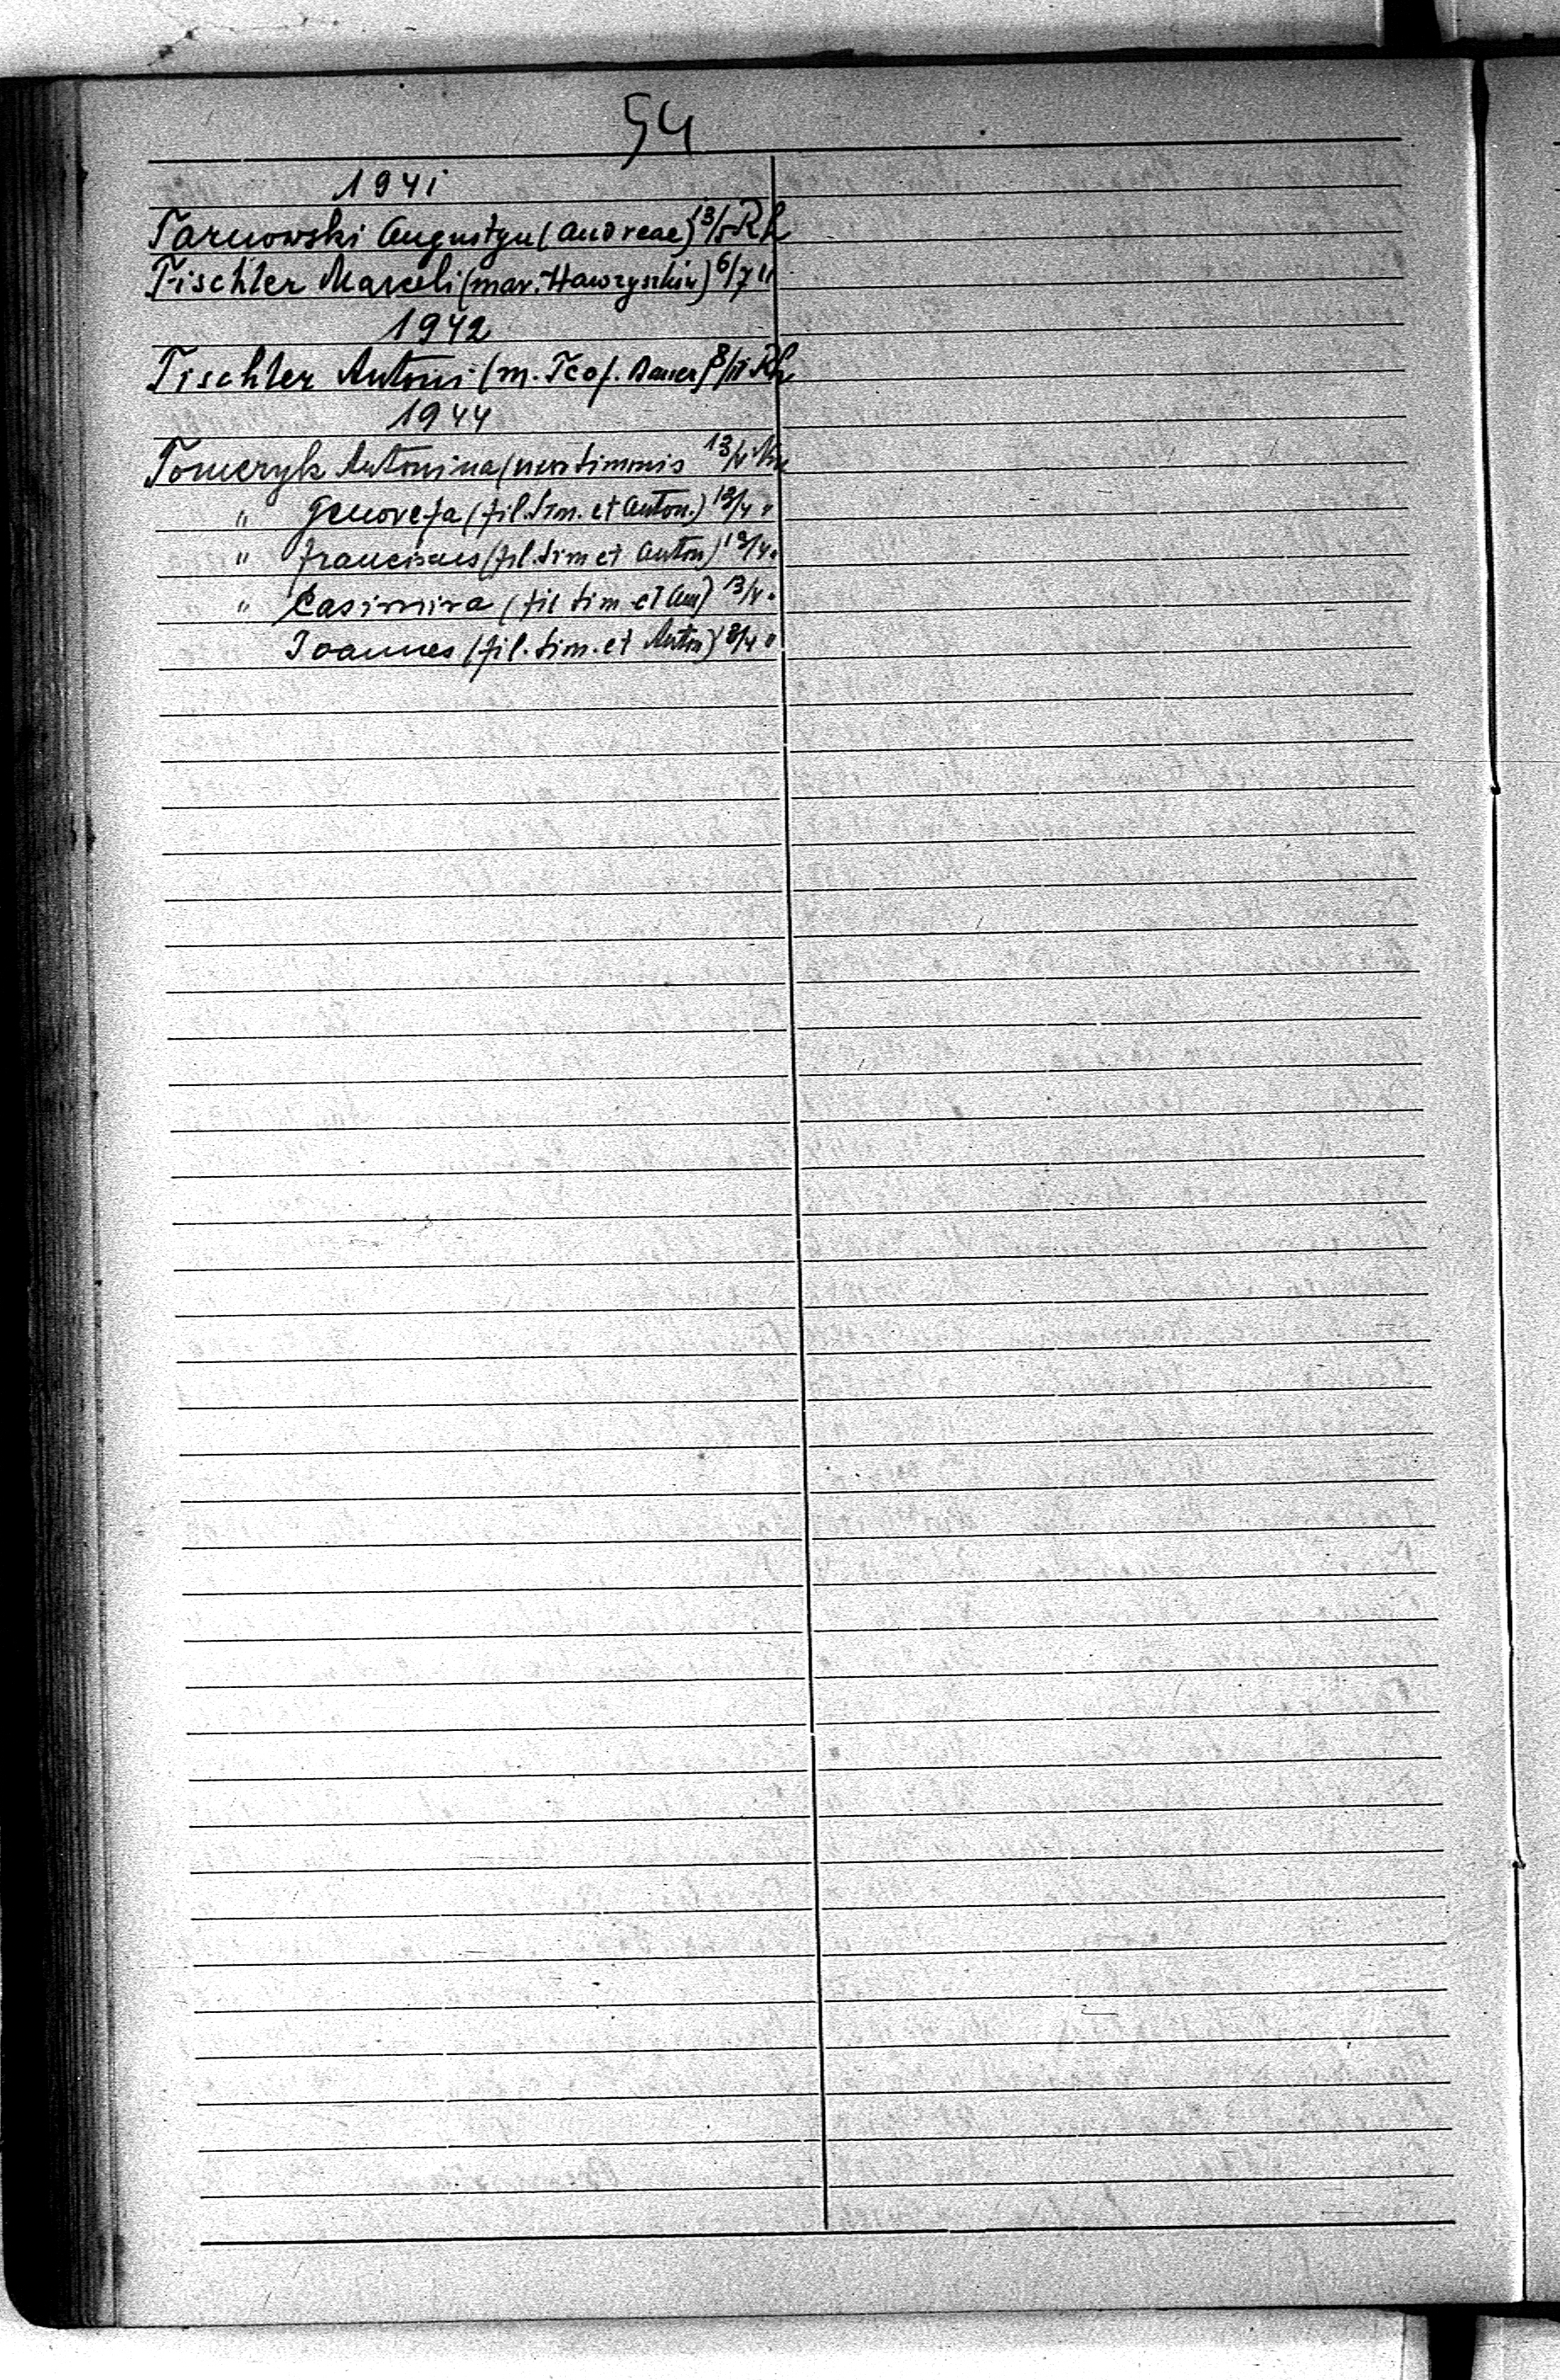 54
1941
Tarnowski Augustyn (Andreae) 13/5 Rh
Tischler Marceli (mar. Hawryszkiw) 6/7 "
1942
Tischler Antoni (m. Teof. Bauer) 8/II Rh
1944
Tomczyk Antonina (uxor Simonis 13/V
" Genovefa (fil. Sim. et Anton.) 13/V "
" Franciscus (fil. Sim et Anton) 13/V "
" Casimira (fil Sim et An) 13/V "
Joannes (fil. Sim. et Anton) 13/V "